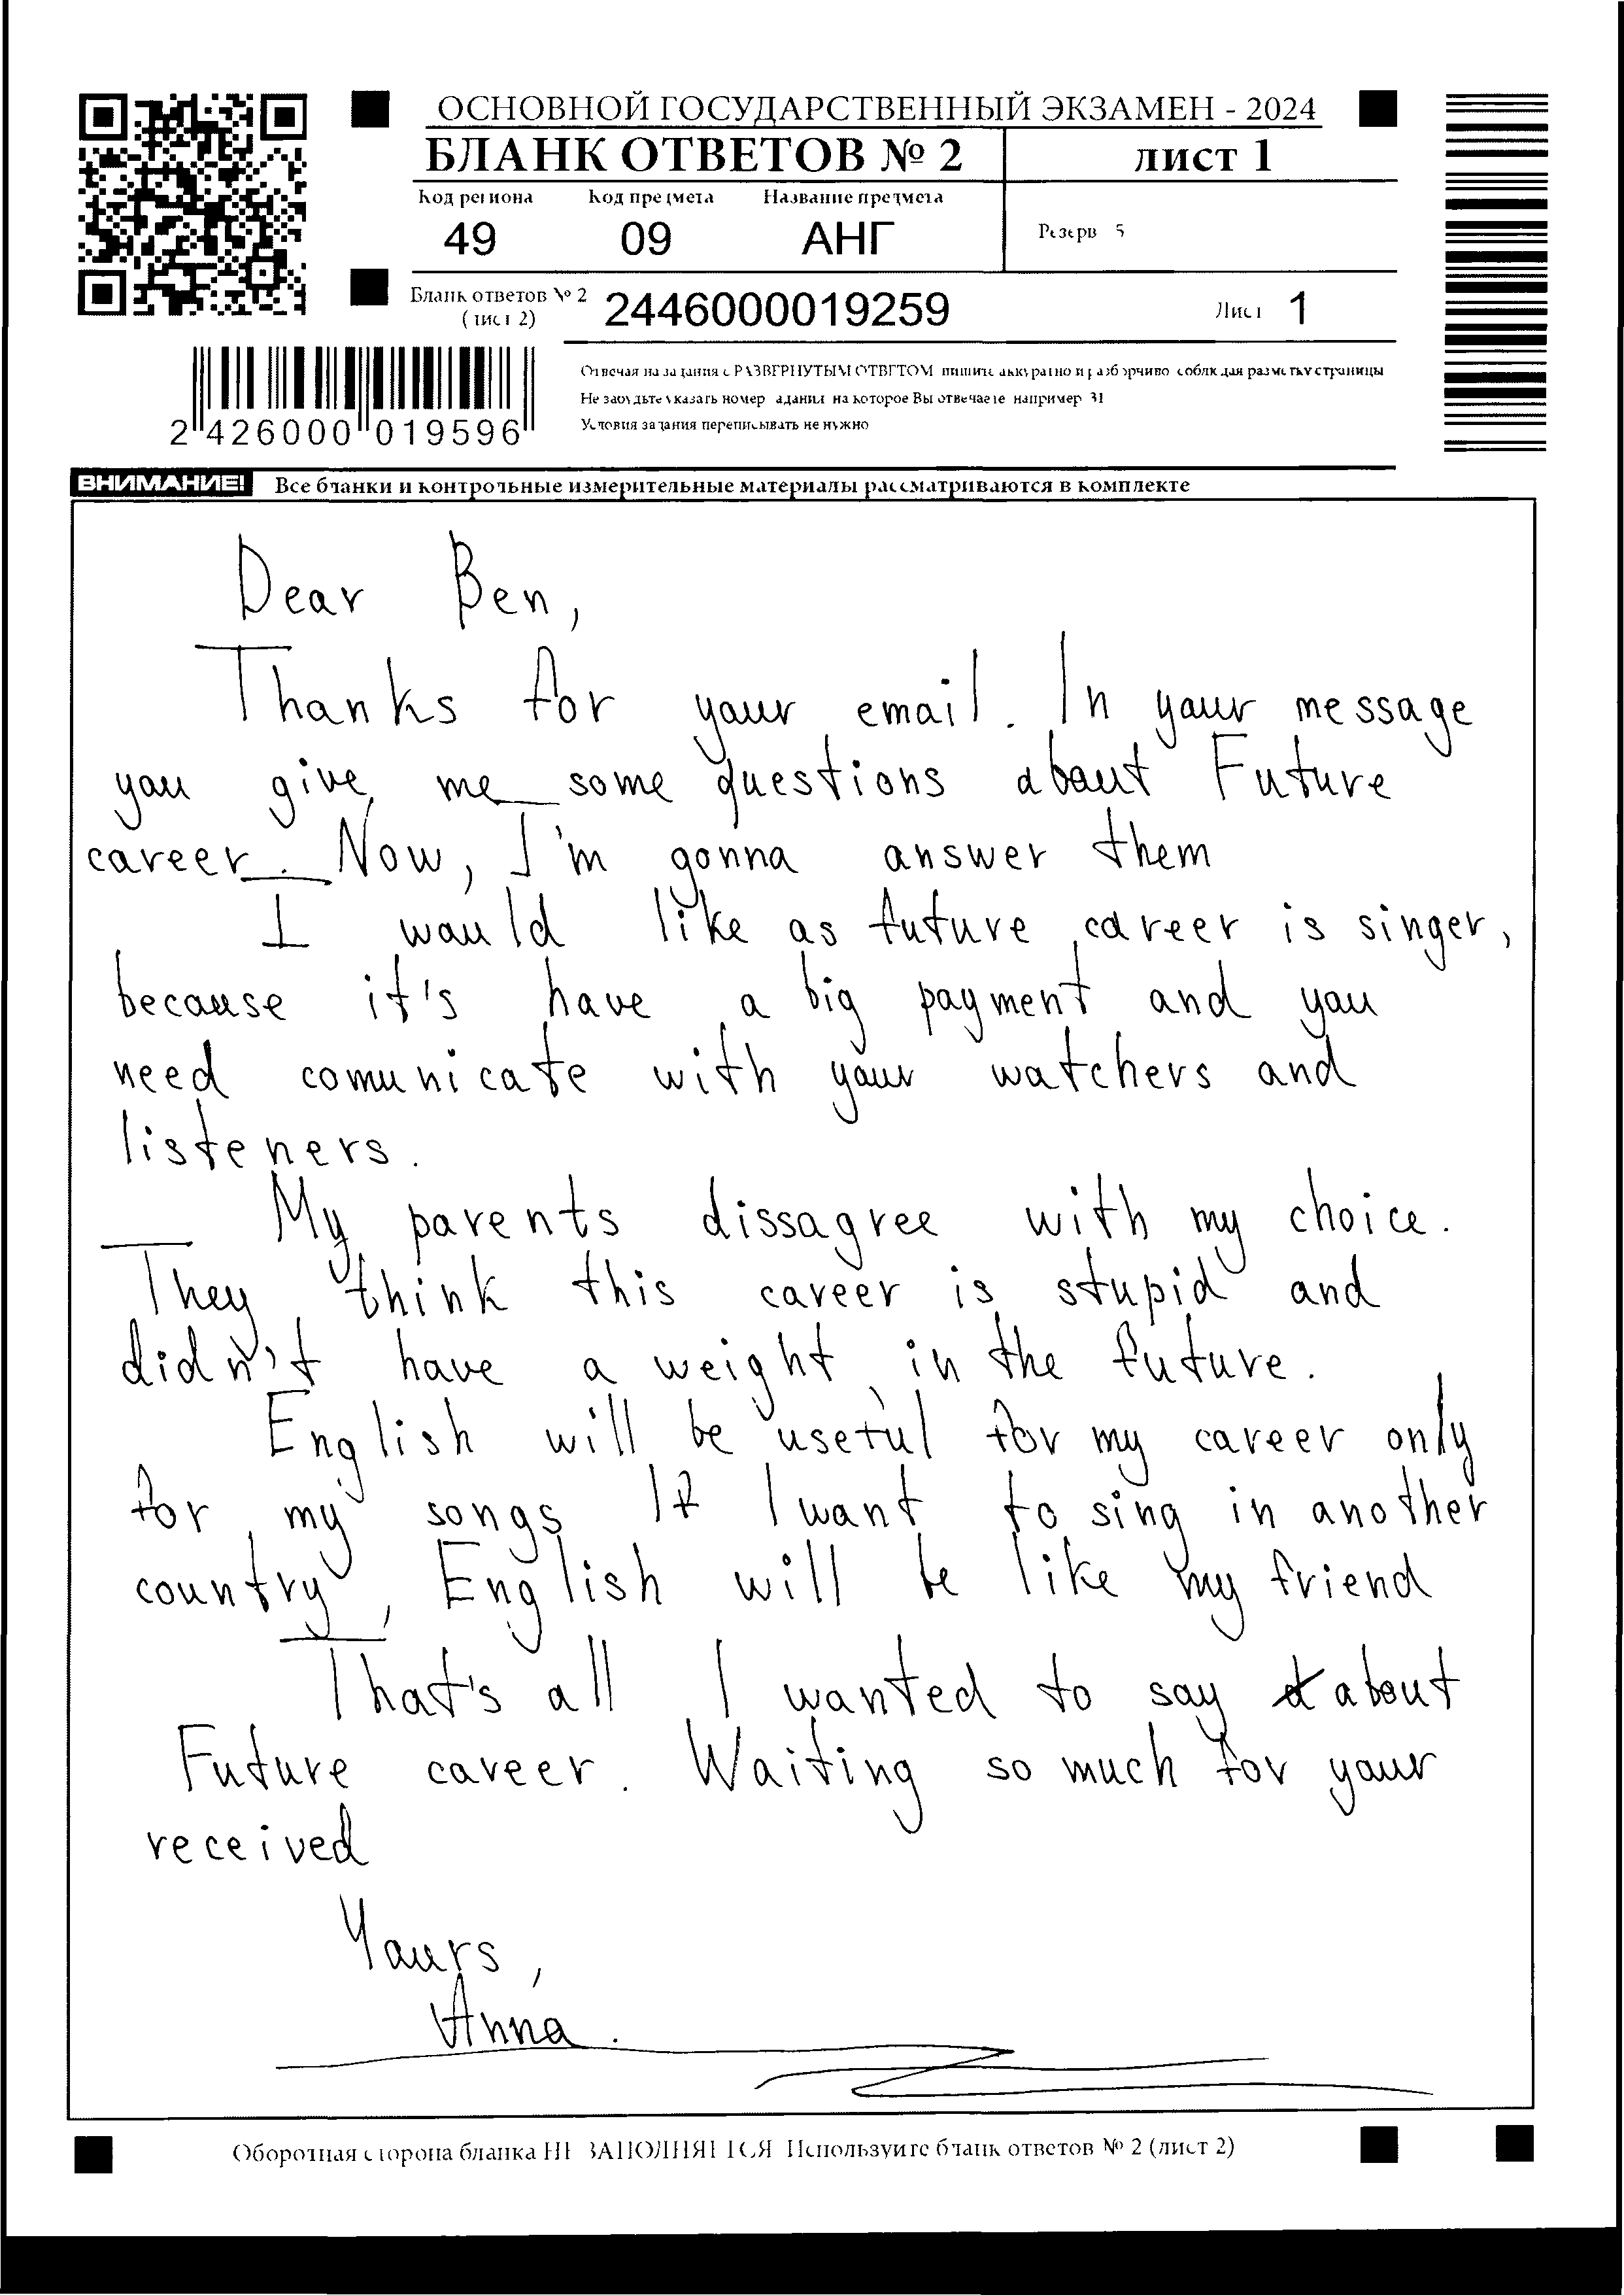 ОСНОВНОЙ ГОСУДАРСТВЕННЫЙ ЭКЗАМЕН - 2024
БЛАНК ОТВЕТОВ № 2
лист 1
Код региона
Код предмета
Название предмета
49
09
АНГ
Резерв 5
Бланк ответов № 2
(лист 2)
2446000019259
Лист 1
Отвечая на задания с РАЗВЕРНУТЫМ ОТВЕТОМ пишите аккуратно и разборчиво соблюдая разметку страницы
Не забудьте указать номер задания на которое Вы отвечаете например 31
Условия задания переписывать не нужно
2 426000 019596
ВНИМАНИЕ! Все бланки и контрольные измерительные материалы рассматриваются в комплекте
Dear Ben,
Thanks for your email. In your message
you give me some questions about Future
career. Now, I'm gonna answer them
I would like as future career is singer,
because it's have a big payment and you
need comunicate with your watchers and
listeners.
My parents dissagree with my choice.
They think this career is stupid and
didn't have a weight in the future.
English will be useful for my career only
for my songs If I want to sing in another
country, English will be like my friend
That's all I wanted to say about
Future career. Waiting so much for your
received
Yours,
Anna.
Оборотная сторона бланка НЕ ЗАПОЛНЯЕТСЯ Используйте бланк ответов № 2 (лист 2)